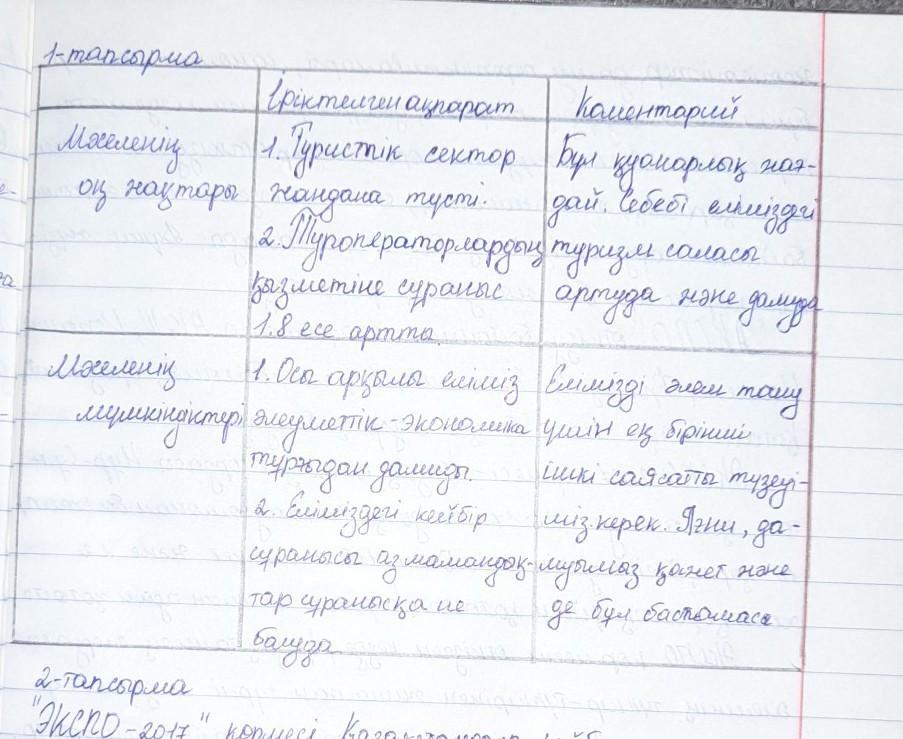 1-тапсырма
Іріктелген ақпарат
Коментарий
Мәселенің
оң жақтары
1. Туристік сектор
жандана түсті.
2. Туроператорлардың
қызметіне сұраныс
1.8 есе артты.
Бұл қуанарлық жағ-
дай. Себебі еліміздегі
туризм саласы
артуда және дамуда
Мәселенің
мүмкіндіктері
1. Осы арқылы еліміз
әлеуметтік-экономика
тұрғыдан дамиды.
2. Еліміздегі кейбір
сұранысы аз мамандық-
тар сұранысқа ие
болуда
Елімізді әлем тану
үшін ең бірінші
ішкі саясатты түзеуі-
міз керек. Яғни, да-
муымыз қажет және
де бұл бастамасы
2-тапсырма
"ЭКСПО-2017" көрмесі